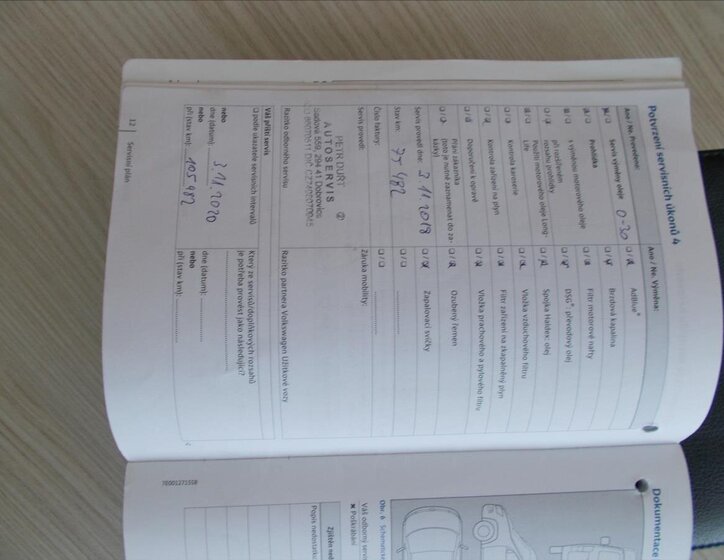 Potvrzení servisních úkonů 4
Ano / Ne. Provedeno:
Servis výměny oleje 0-30
Prohlídka
s výměnou motorového oleje
při rozšířeném
rozsahu prohlídky
použití motorového oleje Long-
Life
Kontrola karoserie
Kontrola zařízení na plyn
Doporučení k opravě
Přání zákazníka
(toto je nutné zaznamenat do za-
kázky)
Servis provedl dne: 3 11 2018
Stav km: 75 482
Číslo faktury:
Servis provedl:
PETR DURT
AUTOSERVIS
Sadová 859, 294 41 Dobrovice
Razítko odborného servisu
Váš příští servis
podle ukazatele servisních intervalů
nebo
dne (datum): 3.11.2020
nebo
při (stav km): 105.482
12 Servisní plán
Ano / Ne. Výměna:
AdBlue®
Brzdová kapalina
Filtr motorové nafty
DSG®: převodový olej
Spojka Haldex: olej
Vložka vzduchového filtru
Filtr zařízení na zkapalněný plyn
Vložka prachového a pylového filtru
Ozubený řemen
Zapalovací svíčky
Záruka mobility:
Razítko partnera Volkswagen Užitkové vozy
Který ze servisů/doplňkových rozsahů
je potřeba provést jako následující?
dne (datum):
nebo
při (stav km):
7E0012715SB
Dokumentace
Obr. 6 Schématick
Váš odborný servi
Poškrábání
Zjištěn ne
Popis nedostatk